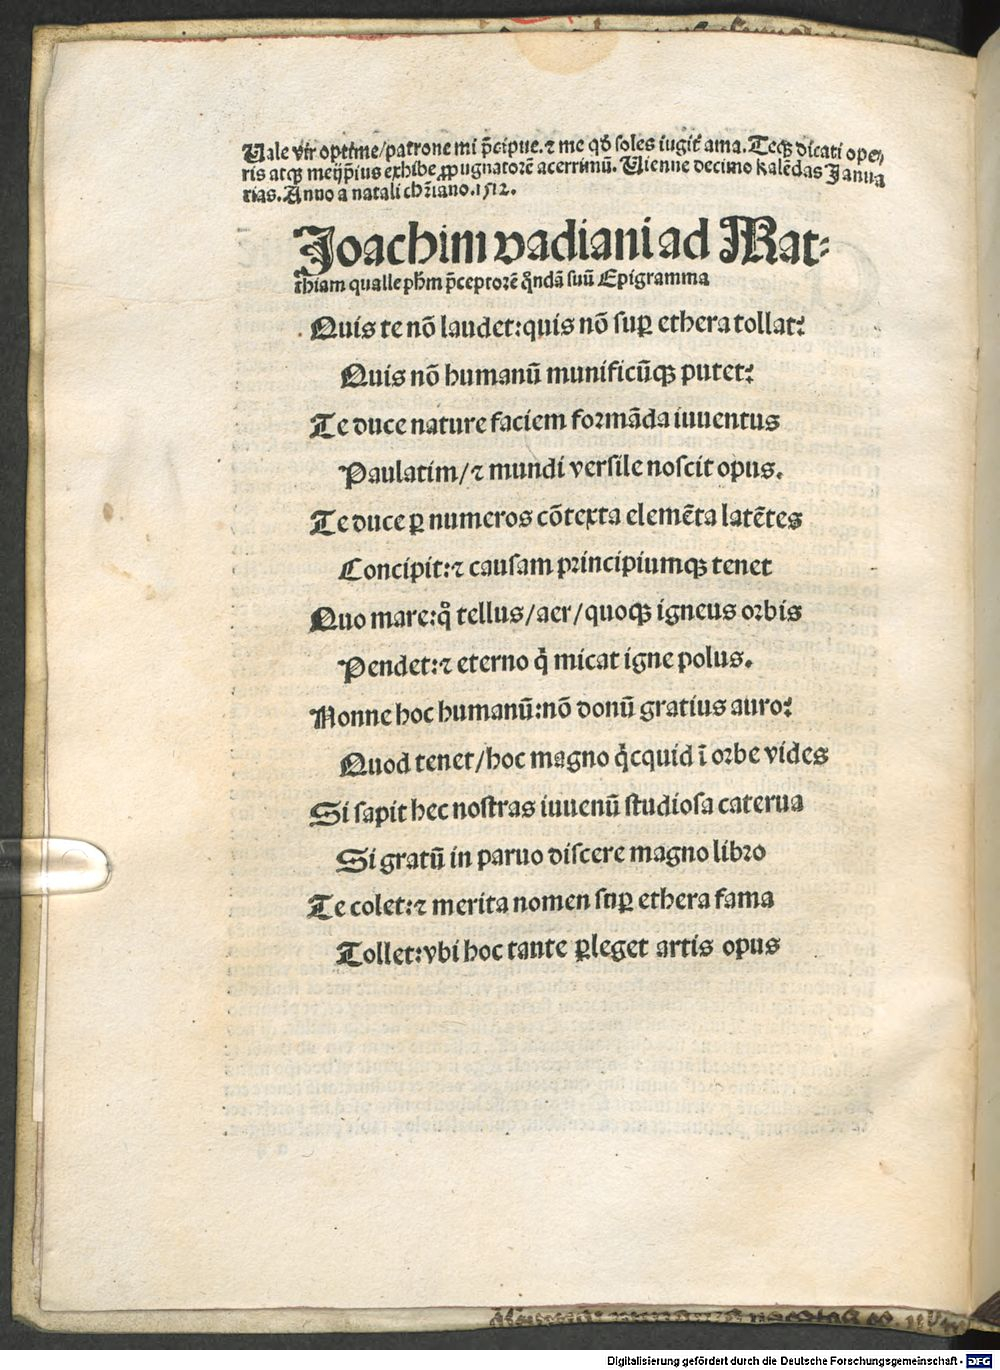 Uale vir optime/patrone mi p̄cipue.⁊ me qđ soles iugit᷑ ama.Teqꝫ dicati ope⸗
ris atqꝫ meijp̄ius exhibe ꝓpugnatorē acerrimū.Uienne decimo kalēdas Janua
rias.Anno a natali chr̄iano.1512.
Joachim vadiani ad Mat⸗
thiam qualle ph̄m p̄ceptorē qͦndā suū Epigramma
Quis te nō laudet:quis nō suꝑ ethera tollat?
Quis nō humanū munificūqꝫ putet?
Te duce nature faciem formāda iuuentus
Paulatim/⁊ mundi versile noscit opus.
Te duce ꝑ numeros cōtexta elemēta latētes
Concipit:⁊ causam principiumqꝫ tenet
Quo mare:qͦ tellus/aer/quoqꝫ igneus orbis
Pendet:⁊ eterno qͥ micat igne polus.
Nonne hoc humanū:nō donū gratius auro?
Quod tenet/hoc magno qͥcquid ī orbe vides
Si sapit hec nostras iuuenū studiosa caterua
Si gratū in paruo discere magno libro
Te colet:⁊ merita nomen suꝑ ethera fama
Tollet:vbi hoc tante ꝑleget artis opus
Digitalisierung gefördert durch die Deutsche Forschungsgemeinschaft - DFG